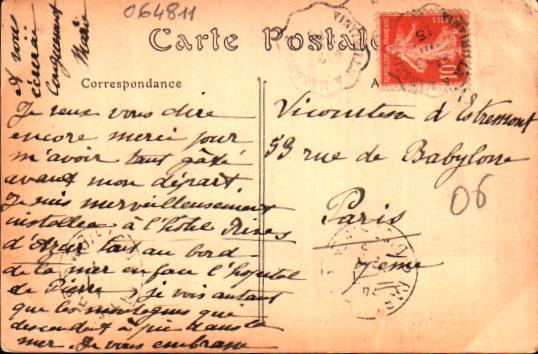 064811
Carte Postale
Correspondance
Je veux vous dire
encore merci pour
m'avoir tant gâtée
avant mon départ.
Je suis merveilleusement
installée à l'hôtel Rives
d'Azur tout au bord
de la mer en face l'hopital
de Pierre, je vois autant
que les montagnes que
descendent à pic dans la
mer. Je vous embrasse
à vous
Marie
Vicomtesse d'Estremont
59 rue de Babylone
Paris
7eme
06
10